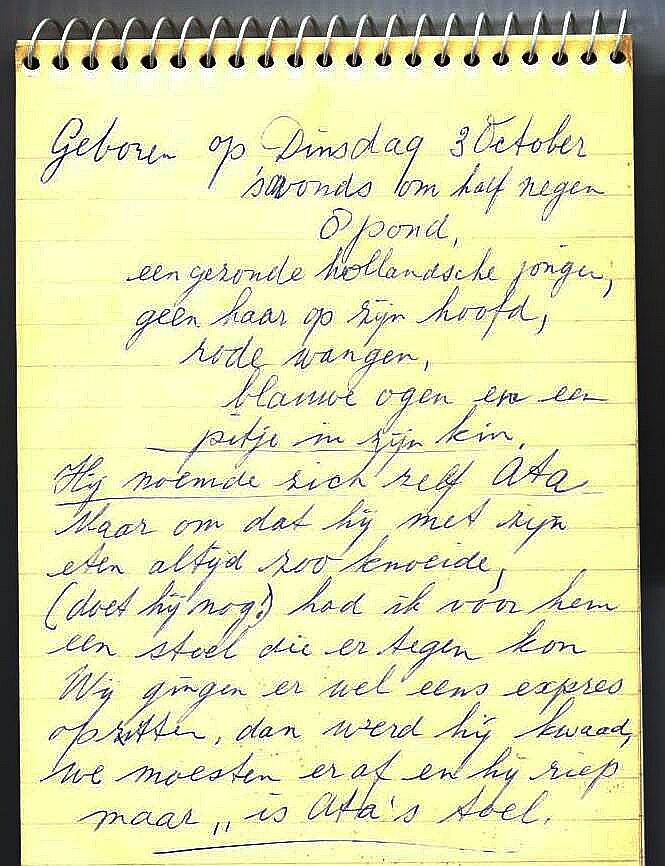 Geboren op Dinsdag 3 October
'savonds om half negen
8 pond,
een gezonde hollandsche jongen,
geen haar op zijn hoofd,
rode wangen,
blauwe ogen en een
pitje in zijn kin.
Hij noemde zich zelf Ata
Maar om dat hij met zijn
eten altijd zoo knoeide,
(doet hij nog!) had ik voor hem
een stoel die er tegen kon
Wij gingen er wel eens expres
opzitten, dan werd hij kwaad,
we moesten er af en hij riep
maar „is Ata's toel.